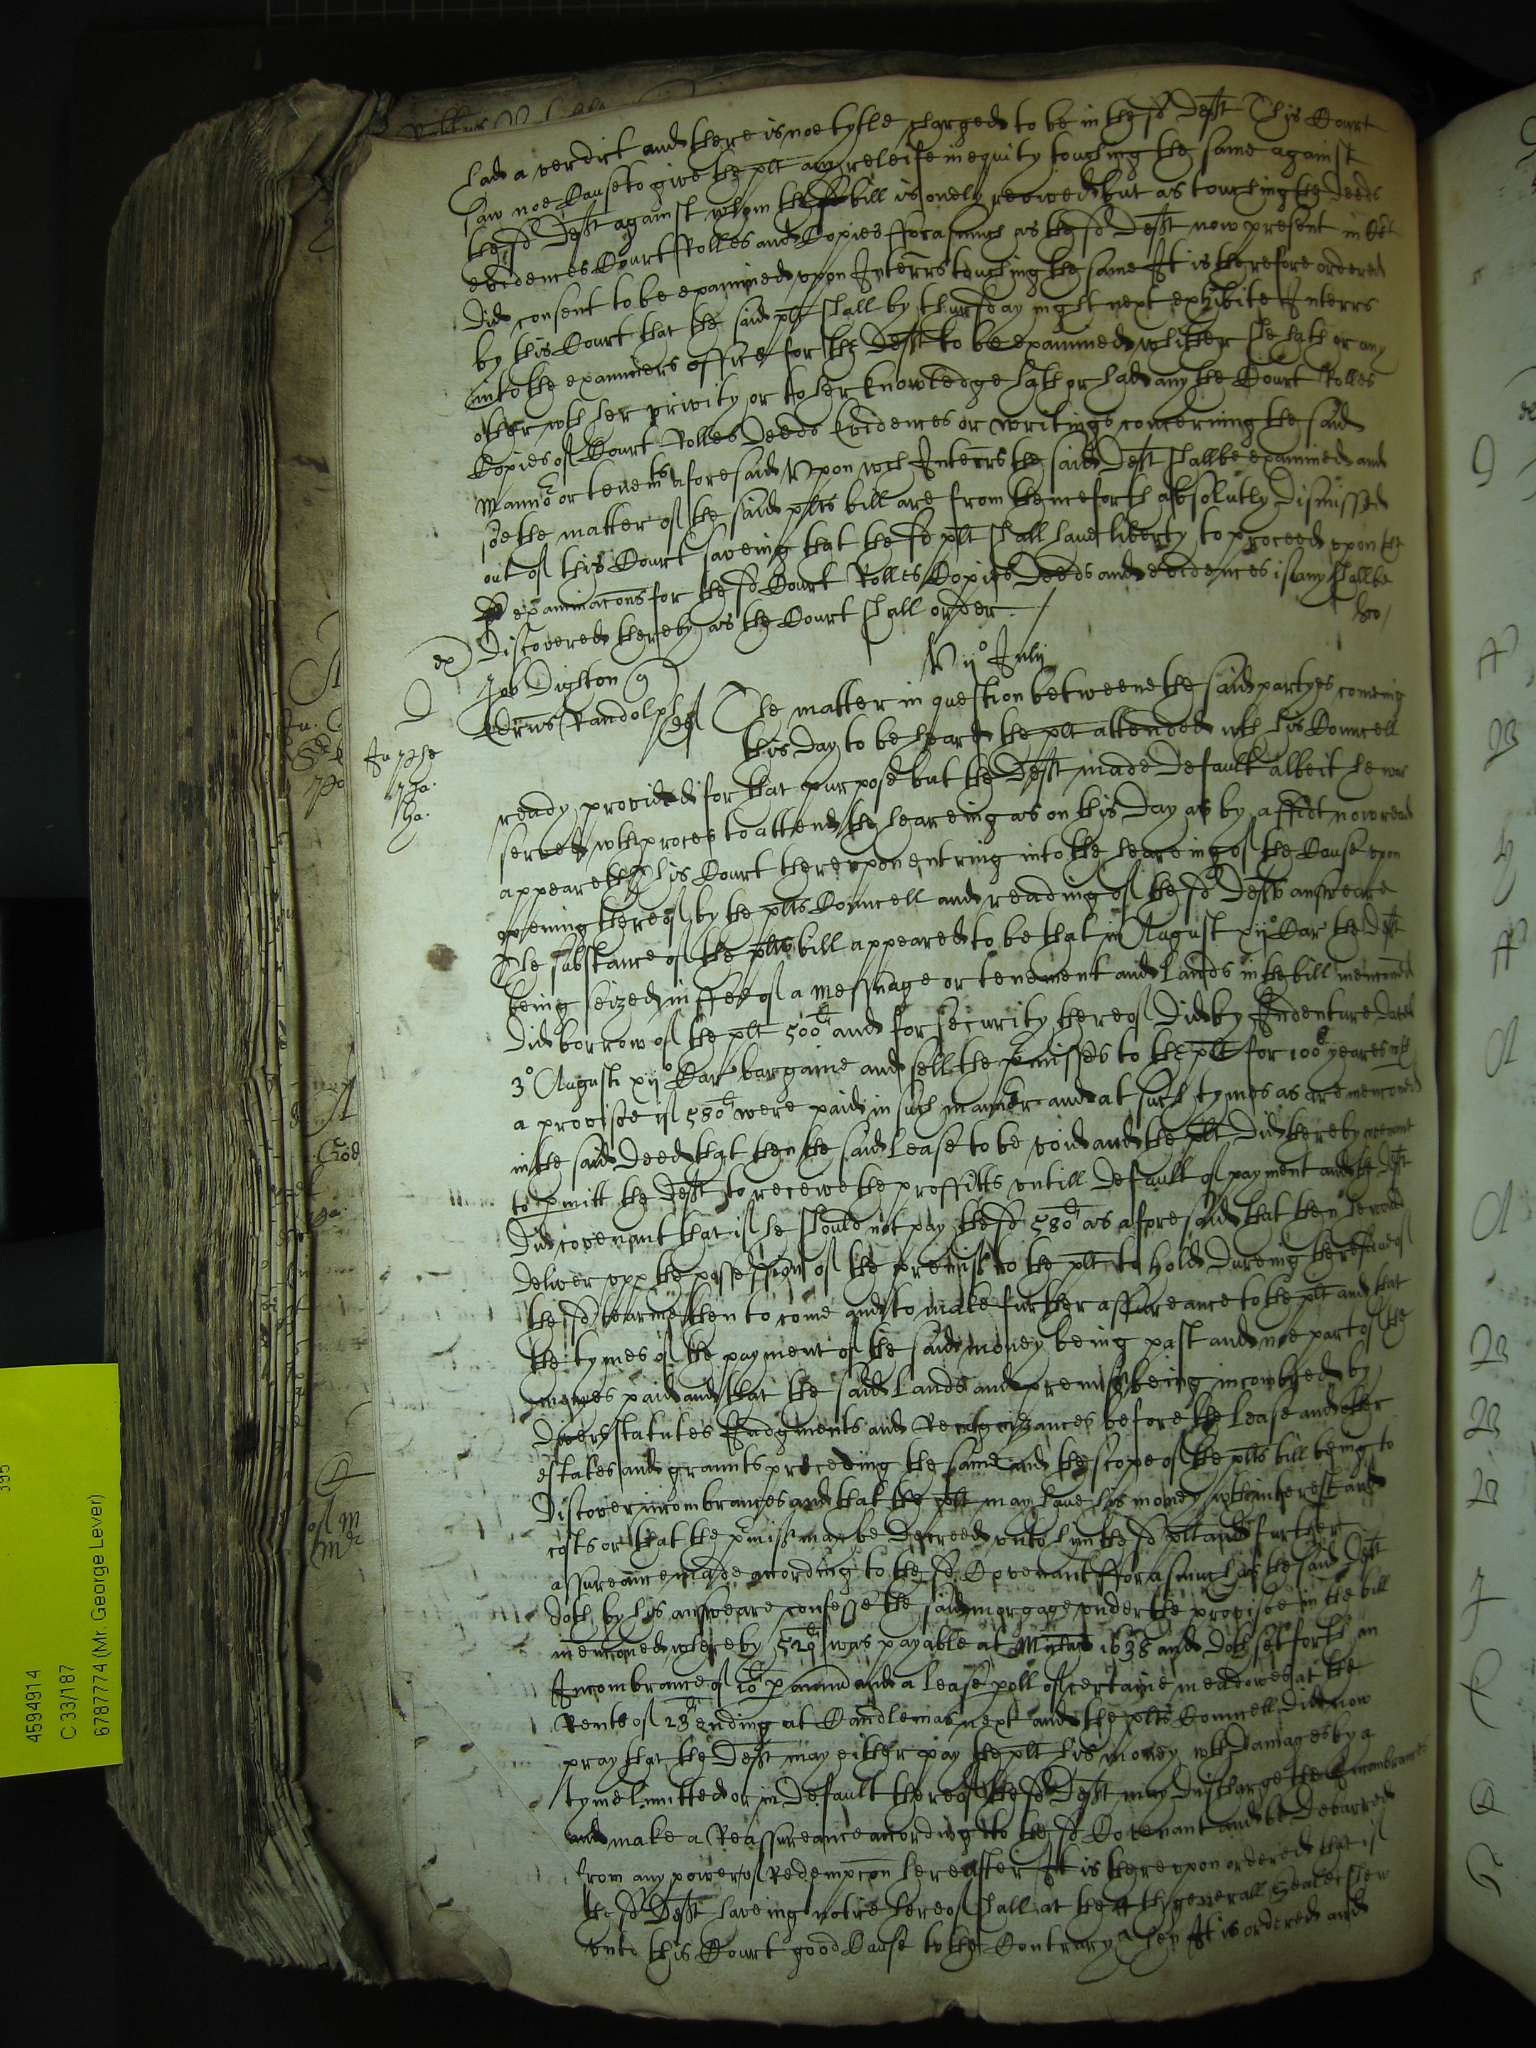 had a verdict and there is noe tytle charged to be in the sd Deft This Court
saw noe Cause to give the plt any releife in equity touching the same against
the sd Deft against whom the sd bill is onely revived but as touching the deeds
evidences Court Rolles and Copies fforasmuch as the sd Deft now present in Crt
did consent to be examined upon Interrs touching the same It is therefore ordered
by this Court that the said plt shall by thursday night next exhibite Interrs
into the examiners office for the Deft to be examined whither she hath or any
other wth her privity or to her knowledge hath or had any the Court Rolles
Copies of Court Rolles Deeds Evidences or writings concerning the said
Mannor or tenemts aforesaid Upon wch Interrs the said Deft shalbe examined and
soe the matter of the said plts bill are from thenceforth absolutly dismissed
out of this Court saveing that the sd plt shall have liberty to proceed upon the
sd examinacons for the sd Court Rolles Copies Deeds and evidences if any shalbe
discovered thereby as the Court shall order
Vijo July
Job Digston q
Edrus Randolph def
The matter in question betweene the said partyes coming
this day to be heard the plt attended wth his Councell
ready provided for that purpose but the Deft made default albeit he was
served wth proces to attend the heareing as on this day as by affidt now read
appeareth This Court thereupon entring into the heareing of the Cause upon
opening thereof by the plts Councell and reading of the sd Defts answeare
The substance of the plts bill appeared to be that in August xijo Car the Deft
being seized in ffee of a messuage or tenement and lands in the bill menconed
did borrow of the plt 500li and for security thereof did by Indenture dated
3o Augusti xijo Car bargaine and sell the pmisses to the plt for 100 yeares wth
a provisoe if 580li were paid in such manner and at such tymes as are menconed
in the said deed that then the said lease to be void and the plt did thereby covenant
to pmitt the Deft to receive the proffitts untill default of payment and the Deft
did covenant that if he should not pay the sd 580li as aforesaid that then he would
deliver upp the possession of the premiss to the plt to hold dureing the residue of
the sd tearme then to come and to make further assureance to the plt and that
the tymes of the payment of the said money being past and noe part of the
monyes paid and that the said lands and premiss being incombred by
divers statutes Judgments and Recognizances before the lease and other
estates and graunts preceding the same and the scope of the plts bill being to
discover incombrances and that the plt may have his money wth interest and
costs or that the pmiss may be decreed unto him the sd plt and further
assureance made according to the sd Covenant fforasmuch as the said Deft
doth by his answeare confesse the said morgage under the provisoe in the bill
menconed whereby 520li was payable at 1638 and doth set forth an
Incombrance of 10li p annu and a lease poll of certaine meadowes at the
Rente of 23li ending at Candlemas next and the plts Councell did now
pray that the Deft may either pay the plt his money wth damages by a
tyme limitted or in default thereof the sd Deft may discharge the Incombrances
and make a Reassureance according to the sd Covenant and be debarred
from any power of Redempcon hereafter It is thereupon ordered that if
the sd Deft haveing notice hereof shall at the generall Seale shew
unto this Court good Cause to the Contrary then It is ordered and
4594914
C 33/187
6787774 (Mr. George Lever)